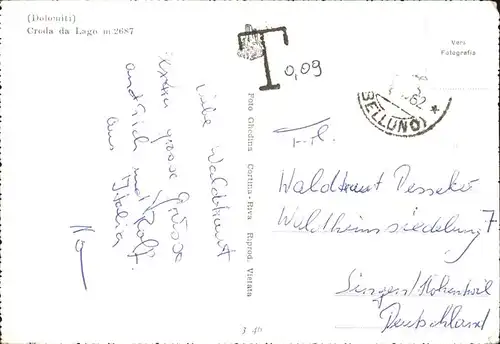 (Dolomiti)
Croda da Lago m 2687
Vera
Fotografia
T
0,09
62
(BELLUNO) *
Liebe Waldtraut
grosse Grüsse
und Rolf.
aus Italia
Foto Ghedina Cortina-Riva Riprod. Vietata
Waldtraut
Waldheimsiedlung 7
Singen/Hohentwil
Deutschland
3 46